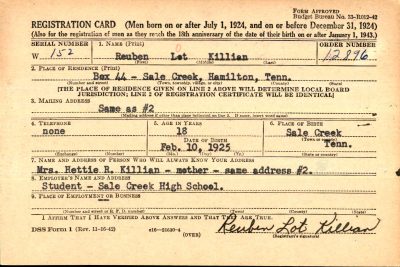 FORM APPROVED
Budget Bureau No. 33-R012-42
REGISTRATION CARD (Men born on or after July 1, 1924, and on or before December 31, 1924)
(Also for the registration of men as they reach the 18th anniversary of the date of their birth on or after January 1, 1943.)
SERIAL NUMBER
1. NAME (Print)
ORDER NUMBER
W 152
Reuben Lot Killian
12876
(First) (Middle) (Last)
2. PLACE OF RESIDENCE (Print)
Box 44 - Sale Creek, Hamilton, Tenn.
(Number and street) (Town, township, village, or city) (County) (State)
[THE PLACE OF RESIDENCE GIVEN ON LINE 2 ABOVE WILL DETERMINE LOCAL BOARD
JURISDICTION; LINE 2 OF REGISTRATION CERTIFICATE WILL BE IDENTICAL]
3. MAILING ADDRESS
Same as #2
[Mailing address if other than place indicated on line 2. If same, insert word same]
4. TELEPHONE
5. AGE IN YEARS
6. PLACE OF BIRTH
none
18
Sale Creek
DATE OF BIRTH
(Town or county)
Feb. 10, 1925
Tenn.
(Exchange) (Number)
(Mo.) (Day) (Yr.)
(State or country)
7. NAME AND ADDRESS OF PERSON WHO WILL ALWAYS KNOW YOUR ADDRESS
Mrs. Hettie R. Killian - mother - same address #2.
8. EMPLOYER'S NAME AND ADDRESS
Student - Sale Creek High School.
9. PLACE OF EMPLOYMENT OR BUSINESS
(Number and street or R. F. D. number) (Town) (County) (State)
I AFFIRM THAT I HAVE VERIFIED ABOVE ANSWERS AND THAT THEY ARE TRUE.
DSS Form 1 (Rev. 11-16-42)
(OVER)
Reuben Lot Killian
(Registrant's signature)